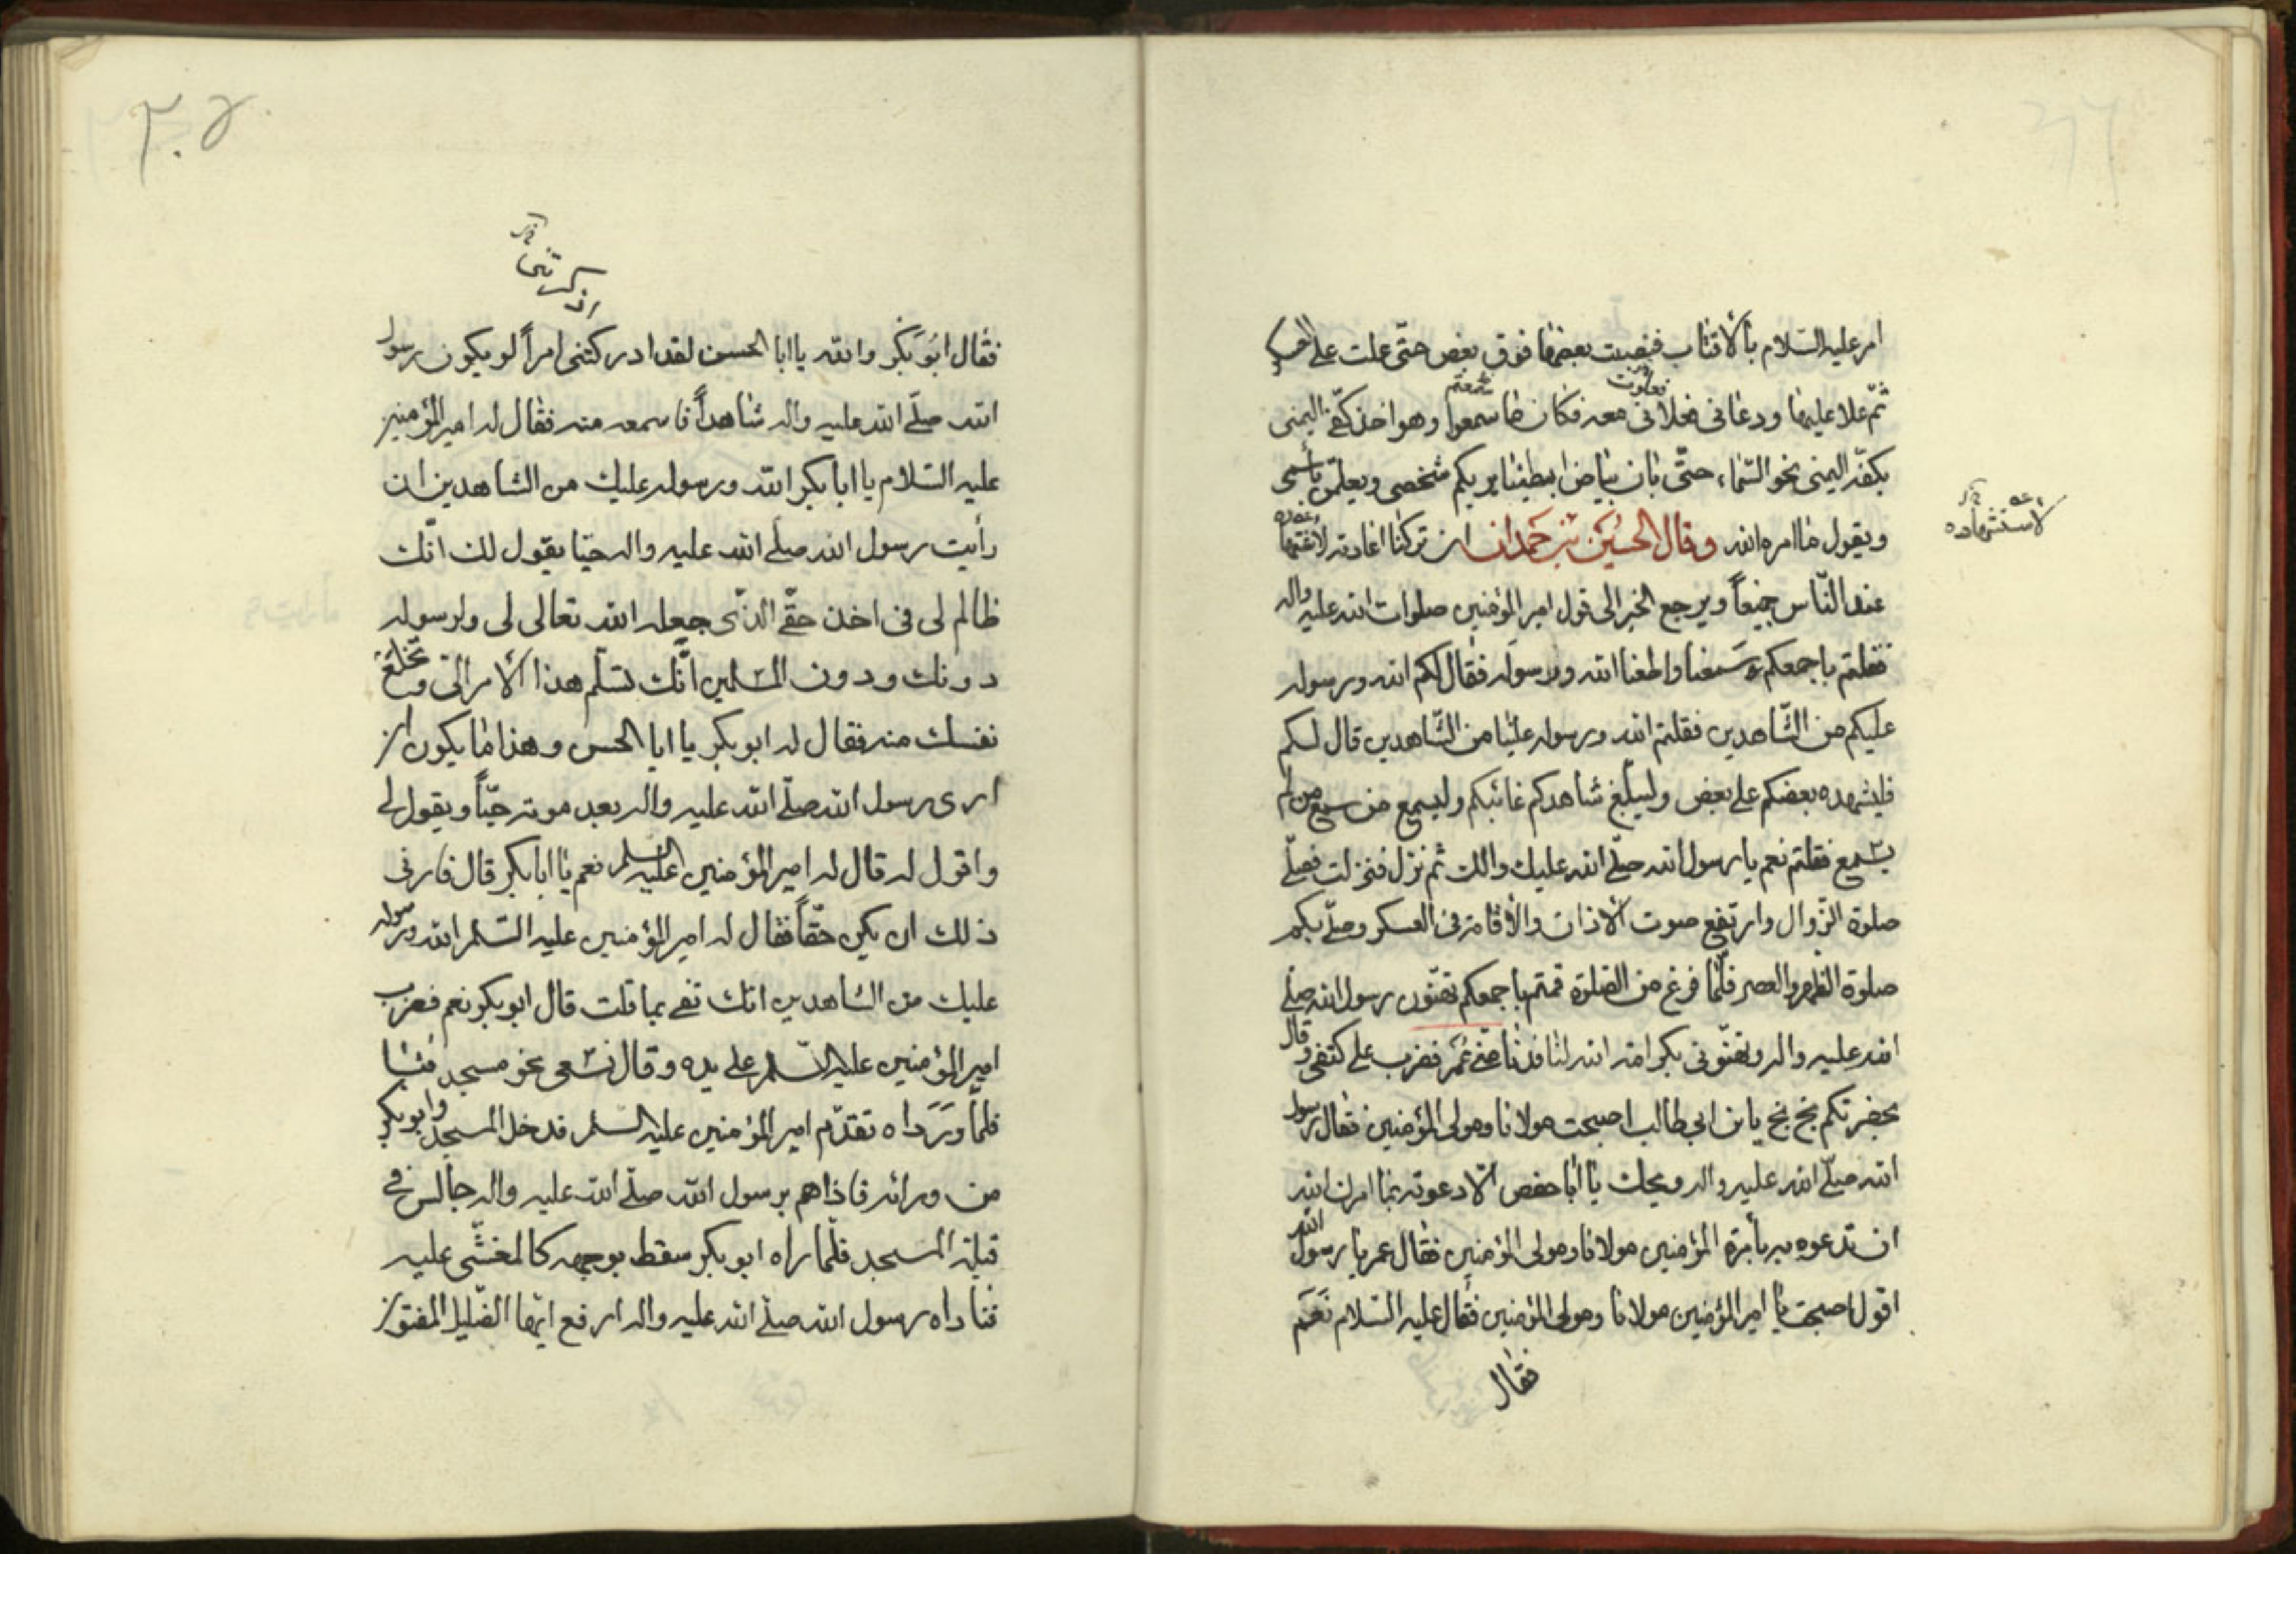 امر عليه السلام بالاقتاب فنصبت بعضها فوق بعض حتى علت على
ثم علا عليها ودعانى فعلانى معه فكان ما سمعوا وهو اخذ كفى اليمنى
فعلوت
سمعتم
بكفه اليمنى نحو السماء، حتى بان بياض ابطينا يريكم شخصى ويعلمن باسمى
ويقول ما امره الله وقال الحسين بن حمدان ان تركنا اعادته
لاستشهاده
عند الناس جميعاً ويرجع الخبر الى قول امير المؤمنين صلوات الله عليه واله
فقلتم باجمعكم سمعنا واطعنا الله ورسوله فقال لكم الله ورسوله
عليكم من الشاهدين فقلتم الله ورسوله علينا من الشاهدين قال لكم
فليشهد بعضكم على بعض وليبلغ شاهدكم غائبكم وليسمع من سمع من لم
يسمع فقلتم نعم يا رسول الله صلى الله عليك والك ثم نزل فنزلت فصلى
صلوة الزوال وارتفع صوت الاذان والاقامة فى العسكر وصلى بكم
صلوة الظهر والعصر فلما فرغ من الصلوة قمتم باجمعكم تهنّون رسول الله صلى
الله عليه واله وتهنّونى بكرامة الله لنا فدنا منى عمر فضرب على كتفى وقال
بحضرتكم بخ بخ يا بن ابى طالب اصبحت مولانا ومولى المؤمنين فقال رسول
الله صلى الله عليه واله ويحك يا ابا حفص الا دعوته بما امرك الله
ان تدعوه به بأمرة المؤمنين مولانا ومولى المؤمنين فقال عمر يا رسول الله
اقول اصبحت يا امير المؤمنين مولانا ومولى المؤمنين فقال عليه السلام نعم
فقال
٣٠٥
اذكرتنى
فقال ابو بكر والله يا ابا الحسن لقد ادركتنى امراً لو يكون رسول
الله صلى الله عليه واله شاهداً فاسمعه منه فقال له امير المؤمنين
عليه السلام يا ابا بكر الله ورسوله عليك من الشاهدين ان
رأيت رسول الله صلى الله عليه واله حيّا يقول لك انّك
ظالم لى فى اخذ حقّى الذى جعله الله تعالى لى ولرسوله
دونك ودون المسلمين انّك تسلّم هذا الامر الىّ وتخلع
نفسك منه فقال له ابو بكر يا ابا الحسن وهذا ما يكون ان
ارى رسول الله صلى الله عليه واله بعد موته حيّاً ويقول لى
واقول له قال له امير المؤمنين عليه السلم نعم يا ابا بكر قال فارنى
ذلك ان يكن حقّاً فقال له امير المؤمنين عليه السلم الله ورسوله
عليك من الشاهدين انك تفى بما قلت قال ابو بكر نعم فضرب
امير المؤمنين عليه السلم على يده وقال نسعى نحو مسجد قبا
فلما ورداه تقدّم امير المؤمنين عليه السلم فدخل المسجد وابو بكر
من ورائه فاذا هم برسول الله صلى الله عليه واله جالس فى
قبلة المسجد فلمّا راه ابو بكر سقط بوجهه كالمغشّى عليه
فناداه رسول الله صلى الله عليه واله ارفع ايّها الضليل المفتون